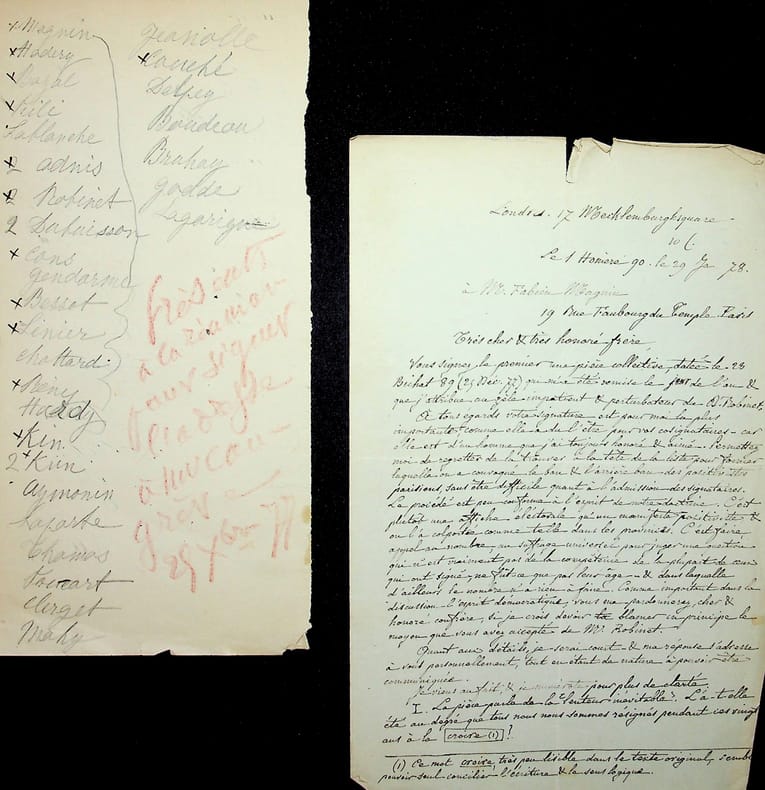 x Magnin
x Hadery
x Bazal
x Kili
Lablanche
2 adnis
2 Robinet
2 Dubuisson
x Cons
Gendarme
x Besset
x Linier
Chattard
x Beny
Haddy
x Kin
2 x Kün
Aymonin
Laporte
Thomas
Toucart
Clerget
Mahy
Jeanolle
x Couché
Delpey
Boudeau
Bruhay
Godde
Lagarrigue
présents
à la réunion
pour signer
l'adresse
à Mr Con-
grève
25 Xbre 77
Londres. 17 Mecklemburgksquare
10 C.
Le 1 Homère 90. le 29 Ja 78.
à Mr. Fabien Magnin
19 Rue Faubourg du Temple. Paris
Très cher & très honoré frère
Vous signez, le premier une pièce collective, datée le 23
Bichat 89 (25 Déc. 77) qui m'a été remise le jour de l'an &
que j'attribue au zèle impatient & perturbateur du Dr Robinet.
A tous égards votre signature est pour moi la plus
importante, comme elle a dû l'être pour vos cosignataires - car
elle est d'un homme que j'ai toujours honoré & aimé. Permettez
moi de regretter de la trouver à la tête de la liste pour former
laquelle on a convoqué le ban & l'arrière ban des positivistes
parisiens, sans être difficile quant à l'admission des signataires.
Le procédé est peu conforme à l'esprit de notre doctrine. C'est
plutôt une affiche électorale qu'un manifeste positiviste &
on l'a colportée comme telle dans les provinces. C'est faire
appel au nombre, au suffrage universel pour juger une question
qui n'est vraiment pas de la compétence de la plupart de ceux
qui ont signé, ne fût-ce que par leur âge - & dans laquelle
d'ailleurs le nombre n'a rien à faire. Comme important dans la
discussion l'esprit démocratique, vous me pardonnerez, cher &
honoré confrère, si je crois devoir blâmer en principe le
moyen que vous avez accepté de Mr. Robinet.
Quant aux détails, je serai court - & ma réponse s'adresse
à vous personnellement, tout en étant de nature à pouvoir être
communiquée.
Je viens au fait, & je numérote pour plus de clarté.
I. La pièce parle de la "lenteur inévitable". L'a-t-elle
été au degré que tous nous nous sommes résignés pendant ces vingt
ans à la croire (1) !
(1) Ce mot croire, très peu lisible dans le texte original, semble
pouvoir seul concilier l'écriture & le sens logique.